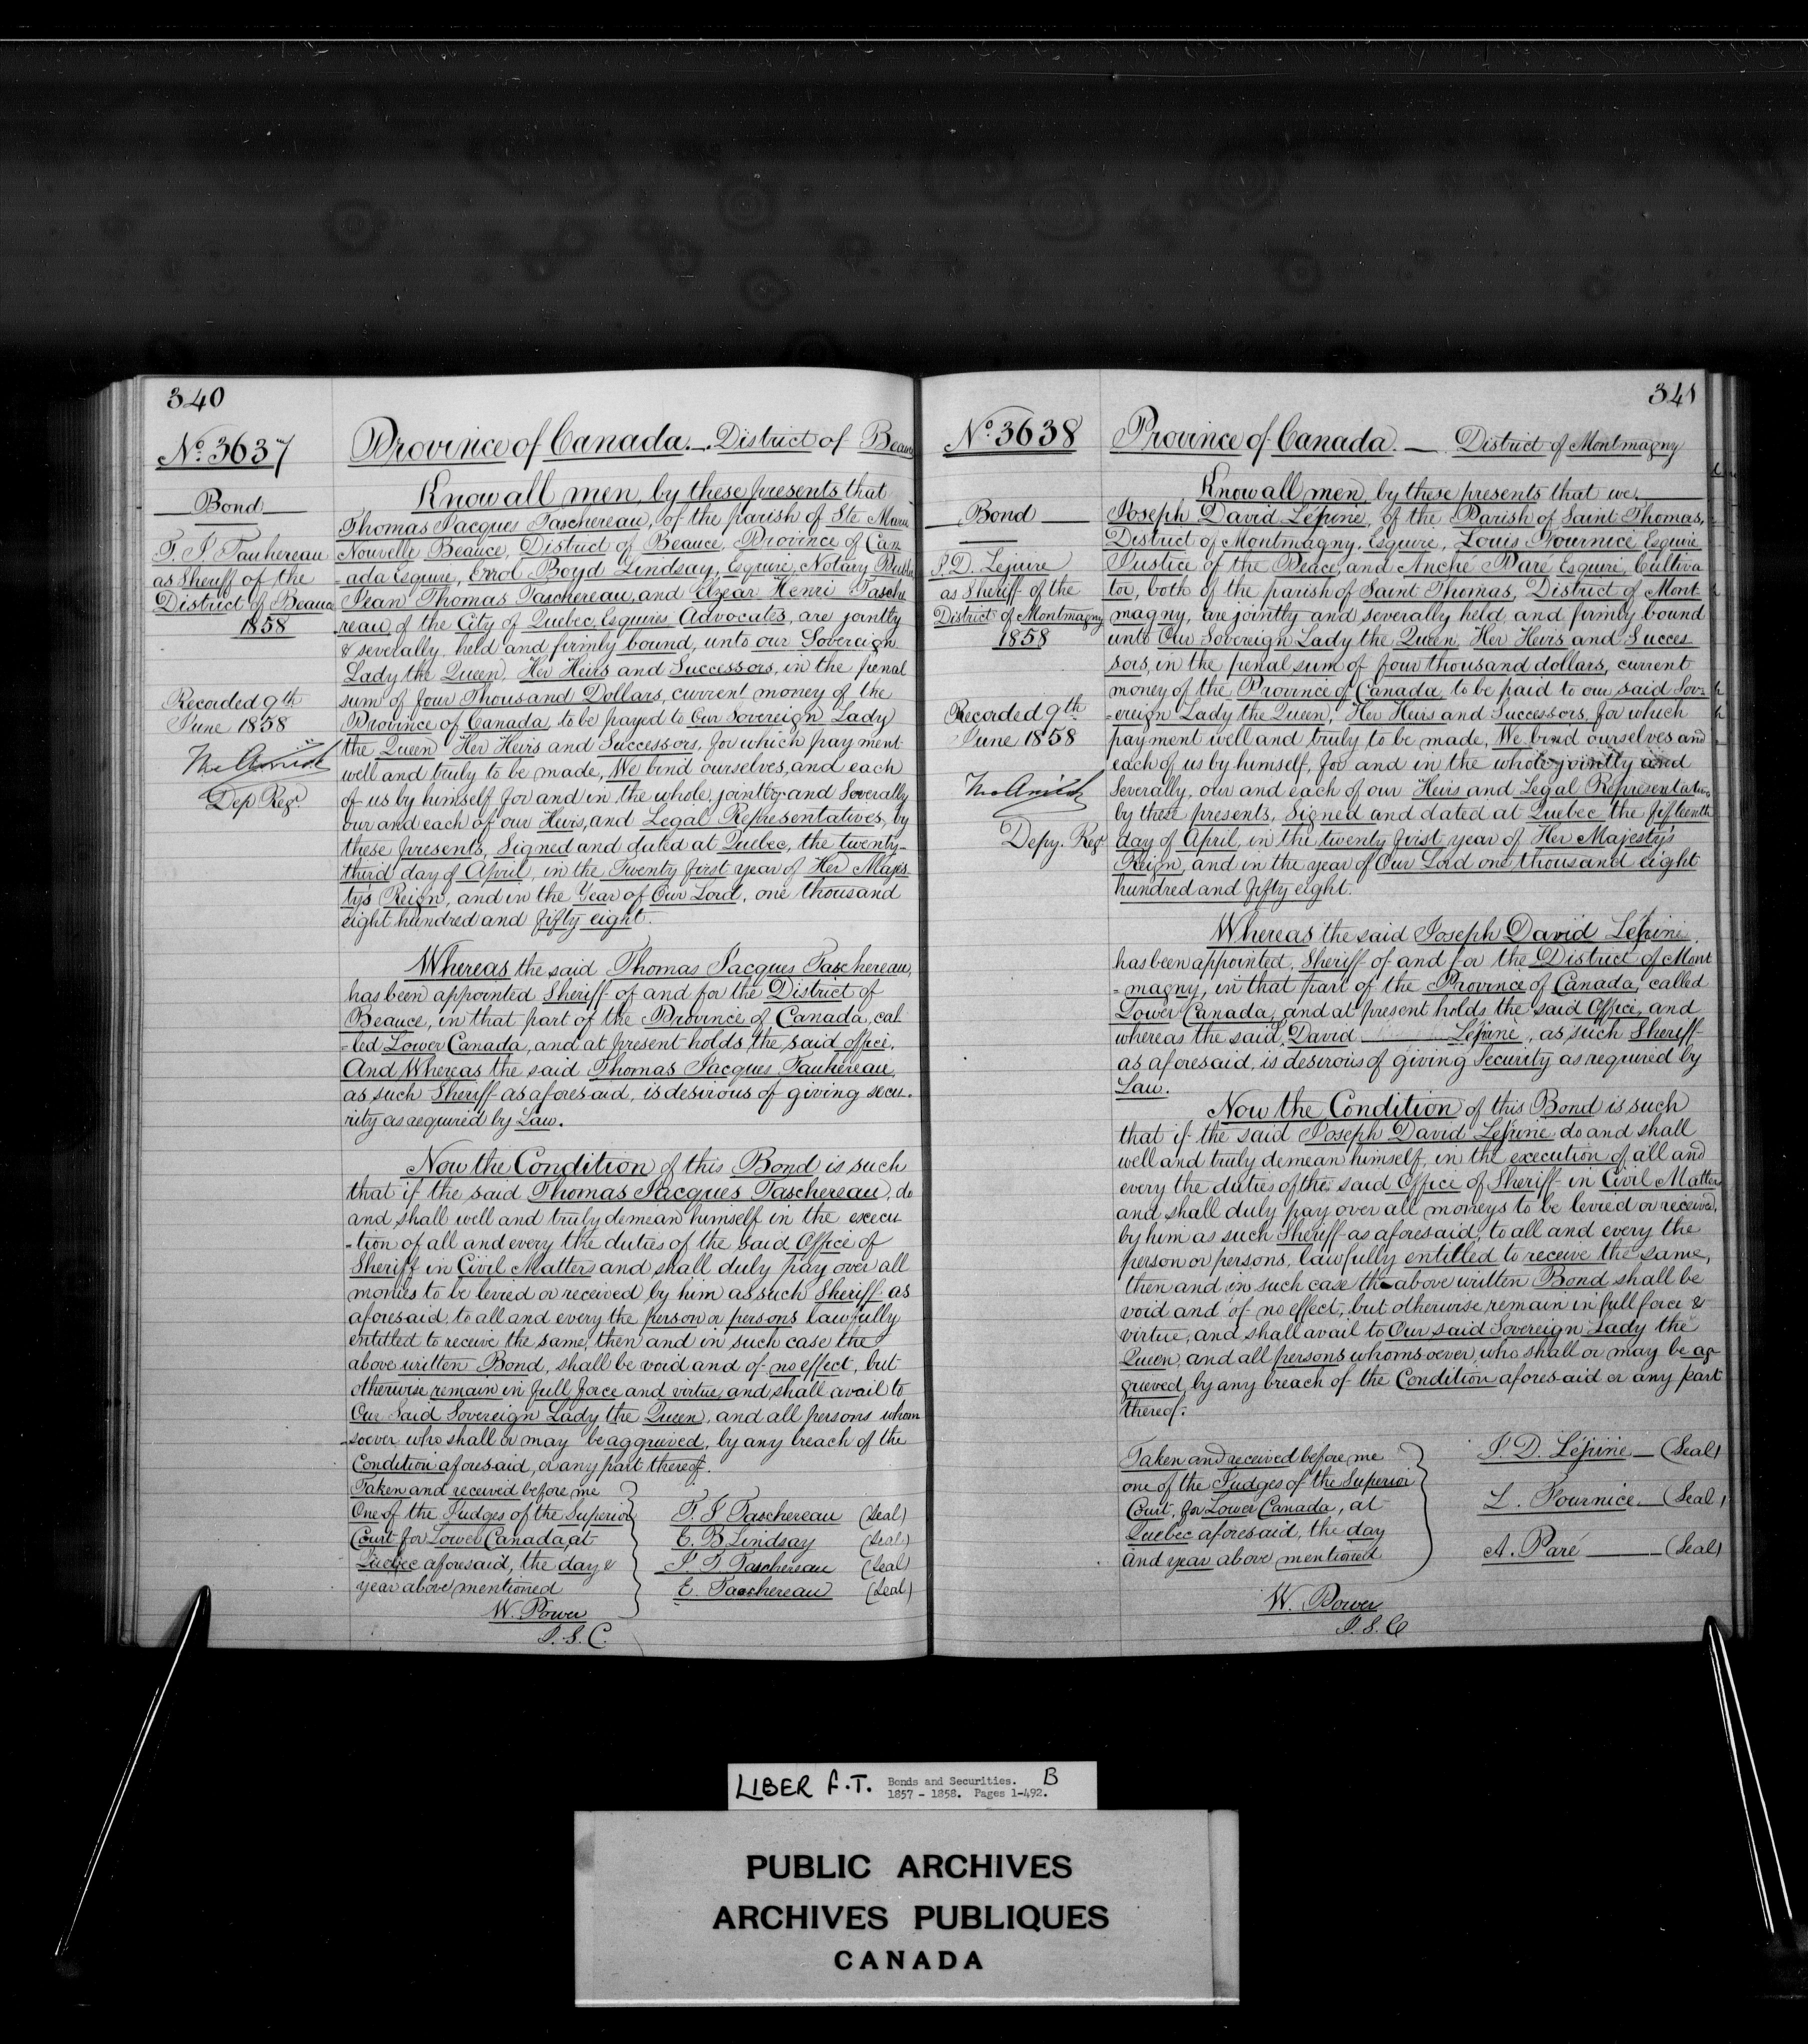 340
No. 3637
Bond
T. J. Tauhereau
as Sheriff of the
District of Beauce
1858
Recorded 9th
June 1858
Dep Regr
Province of Canada. District of Beauce
Know all men, by these presents that
Thomas Jacques Taschereau, of the parish of Ste Marie
Nouvelle Beauce, District of Beauce, Province of Can
-ada Esquire, Errol Boyd Lindsay, Esquire, Notary Public
Jean Thomas Taschereau, and Elzear Henri Tasche
reau, of the City of Quebec, Esquires Advocates, are jointly
& severally held and firmly bound, unto our Sovereign
Lady the Queen, Her Heirs and Successors, in the penal
sum of four Thousand Dollars, current money of the
Province of Canada, to be payed to Our Sovereign Lady
the Queen Her Heirs and Successors, for which payment
well and truly to be made, We bind ourselves, and each
of us by himself for and in the whole, jointly and Severally
our and each of our Heirs, and Legal Representatives, by
these presents, Signed and dated at Quebec, the twenty-
third day of April, in the Twenty first year of Her Majes
ty's Reign, and in the Year of Our Lord, one thousand
eight hundred and fifty eight.
Whereas the said Thomas Jacques Taschereau,
has been appointed Sheriff of and for the District of
Beauce, in that part of the Province of Canada, cal
-led Lower Canada, and at present holds the said office.
And Whereas the said Thomas Jacques Tauhereau,
as such Sheriff as aforesaid, is desirous of giving secu-
rity as required by Law.
Now the Condition of this Bond is such
that if the said Thomas Jacques Taschereau, do
and shall well and truly demean himself in the execu
-tion of all and every the duties of the said Office of
Sheriff in Civil Matters and shall duly pay over all
monies to be levied or received by him as such Sheriff as
aforesaid to all and every the person or persons lawfully
entitled to receive the same, then and in such case the
above written Bond, shall be void and of no effect, but
otherwise remain in full force and virtue, and shall avail to
Our Said Sovereign Lady the Queen, and all persons whom
-soever who shall or may be aggrieved, by any breach of the
Condition aforesaid, or any part thereof.
Taken and received before me
One of the Judges of the Superior
Court for Lower Canada, at
Quebec aforesaid, the day &
year above mentioned
W. Power
J. S. C.
T. J Taschereau (Seal)
E. B Lindsay (Seal)
J T. Taschereau (Seal)
E. Taschereau (Seal)
341
No. 3638
Bond
J. D. Lepine
as Sheriff of the
District of Montmagny
1858
Recorded 9th
June 1858
Depy. Regr
Province of Canada. — District of Montmagny
Know all men by these presents that we,
Joseph David Lépine, of the Parish of Saint Thomas,
District of Montmagny, Esquire, Louis Fournice Esquire
Justice of the Peace, and Anche Pare Esquire, Cultiva
tor, both of the parish of Saint Thomas, District of Mont
magny, are jointly and severally held and firmly bound
unto Our Sovereign Lady the Queen, Her Heirs and Succes
sors, in the penal sum of four thousand dollars, current
money of the Province of Canada, to be paid to our said Sov-
-ereign Lady the Queen, Her Heirs and Successors, for which
payment well and truly to be made, We bind ourselves and
each of us by himself, for and in the whole jointly and
Severally, our and each of our Heirs and Legal Representatives
by these presents, Signed and dated at Quebec the fifteenth
day of April, in the twenty first year of Her Majesty's
Reign, and in the year of Our Lord one thousand eight
hundred and fifty eight.
Whereas the said Joseph David Lépine,
has been appointed, Sheriff of and for the District of Mont
-magny, in that part of the Province of Canada, called
Lower Canada, and at present holds the said Office, and
whereas the said David Lépine, as such Sheriff
as aforesaid, is desirous of giving Security as required by
Law.
Now the Condition of this Bond is such
that if the said Joseph David Lépine do and shall
well and truly demean himself, in the execution of all and
every the duties of the said Office of Sheriff in Civil Matters
and shall duly pay over all moneys to be levied or received,
by him as such Sheriff as aforesaid, to all and every the
person or persons, lawfully entitled to receive the same,
then and in such case the above written Bond shall be
void and of no effect, but otherwise remain in full force &
virtue, and shall avail to Our said Sovereign Lady the
Queen, and all persons whomsoever, who shall or may be ag-
grieved, by any breach of the Condition aforesaid or any part
thereof.
Taken and received before me
one of the Judges of the Superior
Court, for Lower Canada, at
Quebec aforesaid, the day
and year above mentioned
W. Power
J. S. C
J. D. Lépine — (Seal)
L. Fournice — (Seal)
A. Paré — (Seal)
LIBER F.T. Bonds and Securities. B
1857 - 1858. Pages 1-492.
PUBLIC ARCHIVES
ARCHIVES PUBLIQUES
CANADA